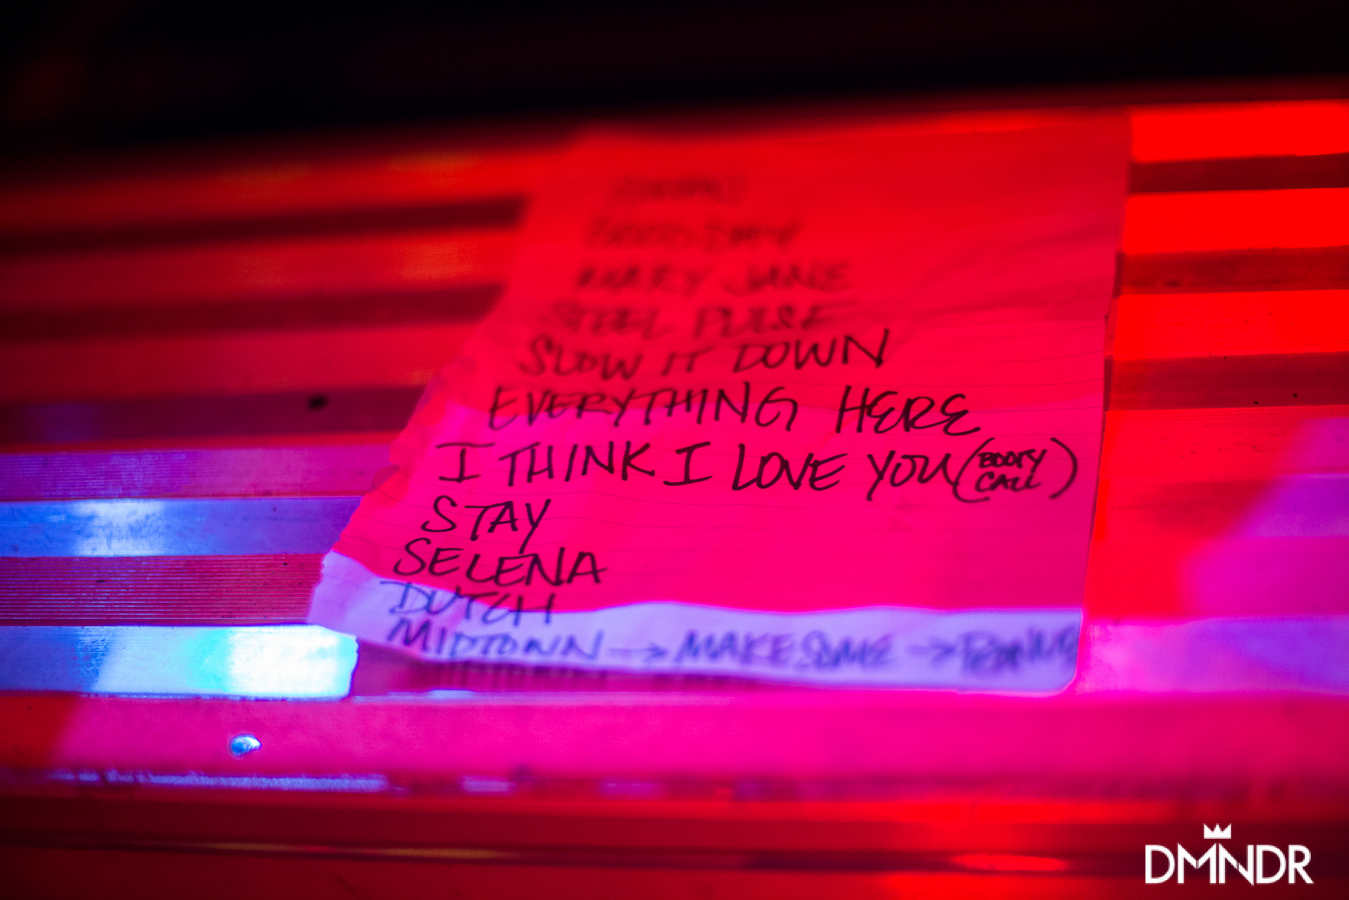 MARY JANE
STEEL PULSE
SLOW IT DOWN
EVERYTHING HERE
I THINK I LOVE YOU (BOOTY CALL)
STAY
SELENA
DUTCH
MIDTOWN → MAKE SOME →
DMNDR